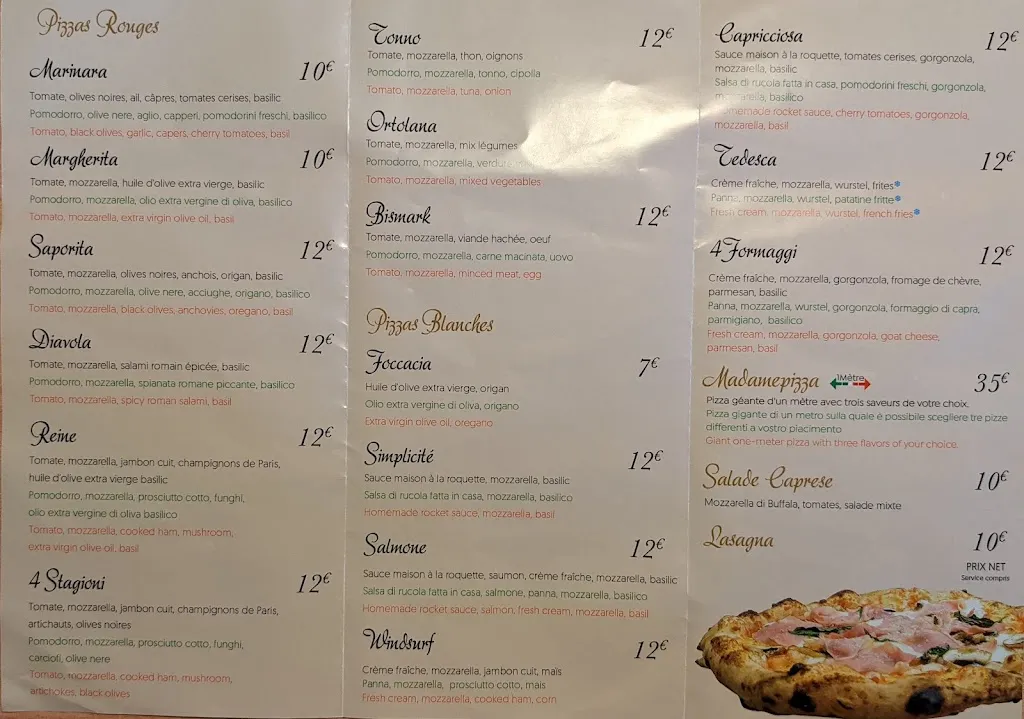 Pizzas Rouges
Marinara 10€
Tomate, olives noires, ail, câpres, tomates cerises, basilic
Pomodorro, olive nere, aglio, capperi, pomodorini freschi, basilico
Tomato, black olives, garlic, capers, cherry tomatoes, basil
Margherita 10€
Tomate, mozzarella, huile d'olive extra vierge, basilic
Pomodorro, mozzarella, olio extra vergine di oliva, basilico
Tomato, mozzarella, extra virgin olive oil, basil
Saporita 12€
Tomate, mozzarella, olives noires, anchois, origan, basilic
Pomodorro, mozzarella, olive nere, acciughe, origano, basilico
Tomato, mozzarella, black olives, anchovies, oregano, basil
Diavola 12€
Tomate, mozzarella, salami romain épicée, basilic
Pomodorro, mozzarella, spianata romane piccante, basilico
Tomato, mozzarella, spicy roman salami, basil
Reine 12€
Tomate, mozzarella, jambon cuit, champignons de Paris,
huile d'olive extra vierge basilic
Pomodorro, mozzarella, prosciutto cotto, funghi,
olio extra vergine di oliva basilico
Tomato, mozzarella, cooked ham, mushroom,
extra virgin olive oil, basil
4 Stagioni 12€
Tomate, mozzarella, jambon cuit, champignons de Paris,
artichauts, olives noires
Pomodorro, mozzarella, prosciutto cotto, funghi,
carcioti, olive nere
Tomato, mozzarella, cooked ham, mushroom,
artichokes, black olives
Tonno 12€
Tomate, mozzarella, thon, oignons
Pomodorro, mozzarella, tonno, cipolla
Tomato, mozzarella, tuna, onion
Ortolana
Tomate, mozzarella, mix légumes
Pomodorro, mozzarella,
Tomato, mozzarella, mixed vegetables
Bismark 12€
Tomate, mozzarella, viande hachée, oeuf
Pomodorro, mozzarella, carne macinata, uovo
Tomato, mozzarella, minced meat, egg
Pizzas Blanches
Foccacia 7€
Huile d'olive extra vierge, origan
Olio extra vergine di oliva, origano
Extra virgin olive oil, oregano
Simplicité 12€
Sauce maison à la roquette, mozzarella, basilic
Salsa di rucola fatta in casa, mozzarella, basilico
Homemade rocket sauce, mozzarella, basil
Salmone 12€
Sauce maison à la roquette, saumon, crème fraîche, mozzarella, basilic
Salsa di rucola fatta in casa, salmone, panna, mozzarella, basilico
Homemade rocket sauce, salmon, fresh cream, mozzarella, basil
Windsurf 12€
Crème fraîche, mozzarella, jambon cuit, maïs
Panna, mozzarella, prosciutto cotto, mais
Fresh cream, mozzarella, cooked ham, corn
Capricciosa 12€
Sauce maison à la roquette, tomates cerises, gorgonzola,
mozzarella, basilic
Salsa di rucola fatta in casa, pomodorini freschi, gorgonzola,
mozzarella, basilico
Homemade rocket sauce, cherry tomatoes, gorgonzola,
mozzarella, basil
Tedesca 12€
Crème fraîche, mozzarella, wurstel, frites*
Panna, mozzarella, wurstel, patatine fritte*
Fresh cream, mozzarella, wurstel, french fries*
4 Formaggi 12€
Crème fraîche, mozzarella, gorgonzola, fromage de chèvre,
parmesan, basilic
Panna, mozzarella, wurstel, gorgonzola, formaggio di capra,
parmigiano, basilico
Fresh cream, mozzarella, gorgonzola, goat cheese,
parmesan, basil
Madamepizza 1Mètre 35€
Pizza géante d'un mètre avec trois saveurs de votre choix,
Pizza gigante di un metro sulla quale è possibile scegliere tre pizze
differenti a vostro piacimento
Giant one-meter pizza with three flavors of your choice.
Salade Caprese 10€
Mozzarella di Buffala, tomates, salade mixte
Lasagna 10€
PRIX NET
Service compris